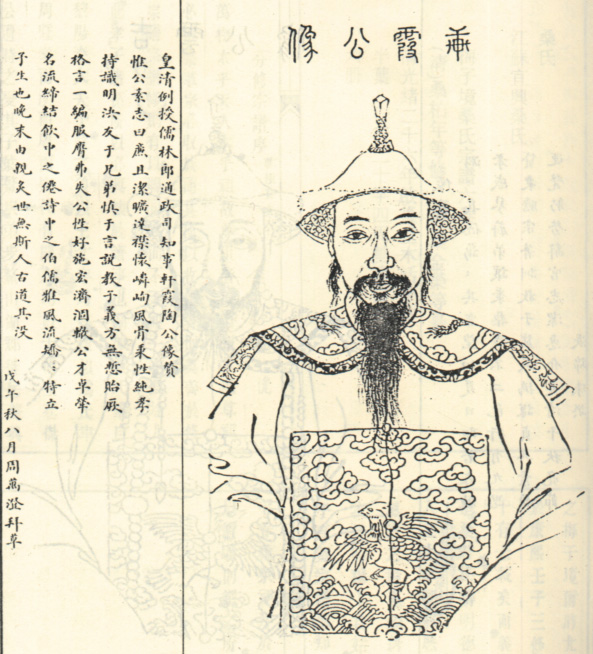 軒霞公像
皇清例授儒林郎通政司知事軒霞陶公像贊
惟公素志曰廉且潔曠達襟懷嶙峋風骨秉性純孝
持識明決友于兄弟慎于言說教子義方無愆貽厥
格言一編服膺弗失公性好施宏濟涸轍公才卓犖
名流締結飲中之僊詩中之伯儒雅風流矯〻特立
予生也晚末由親炙世無斯人古道其没
戊午秋八月周萬澄拜草